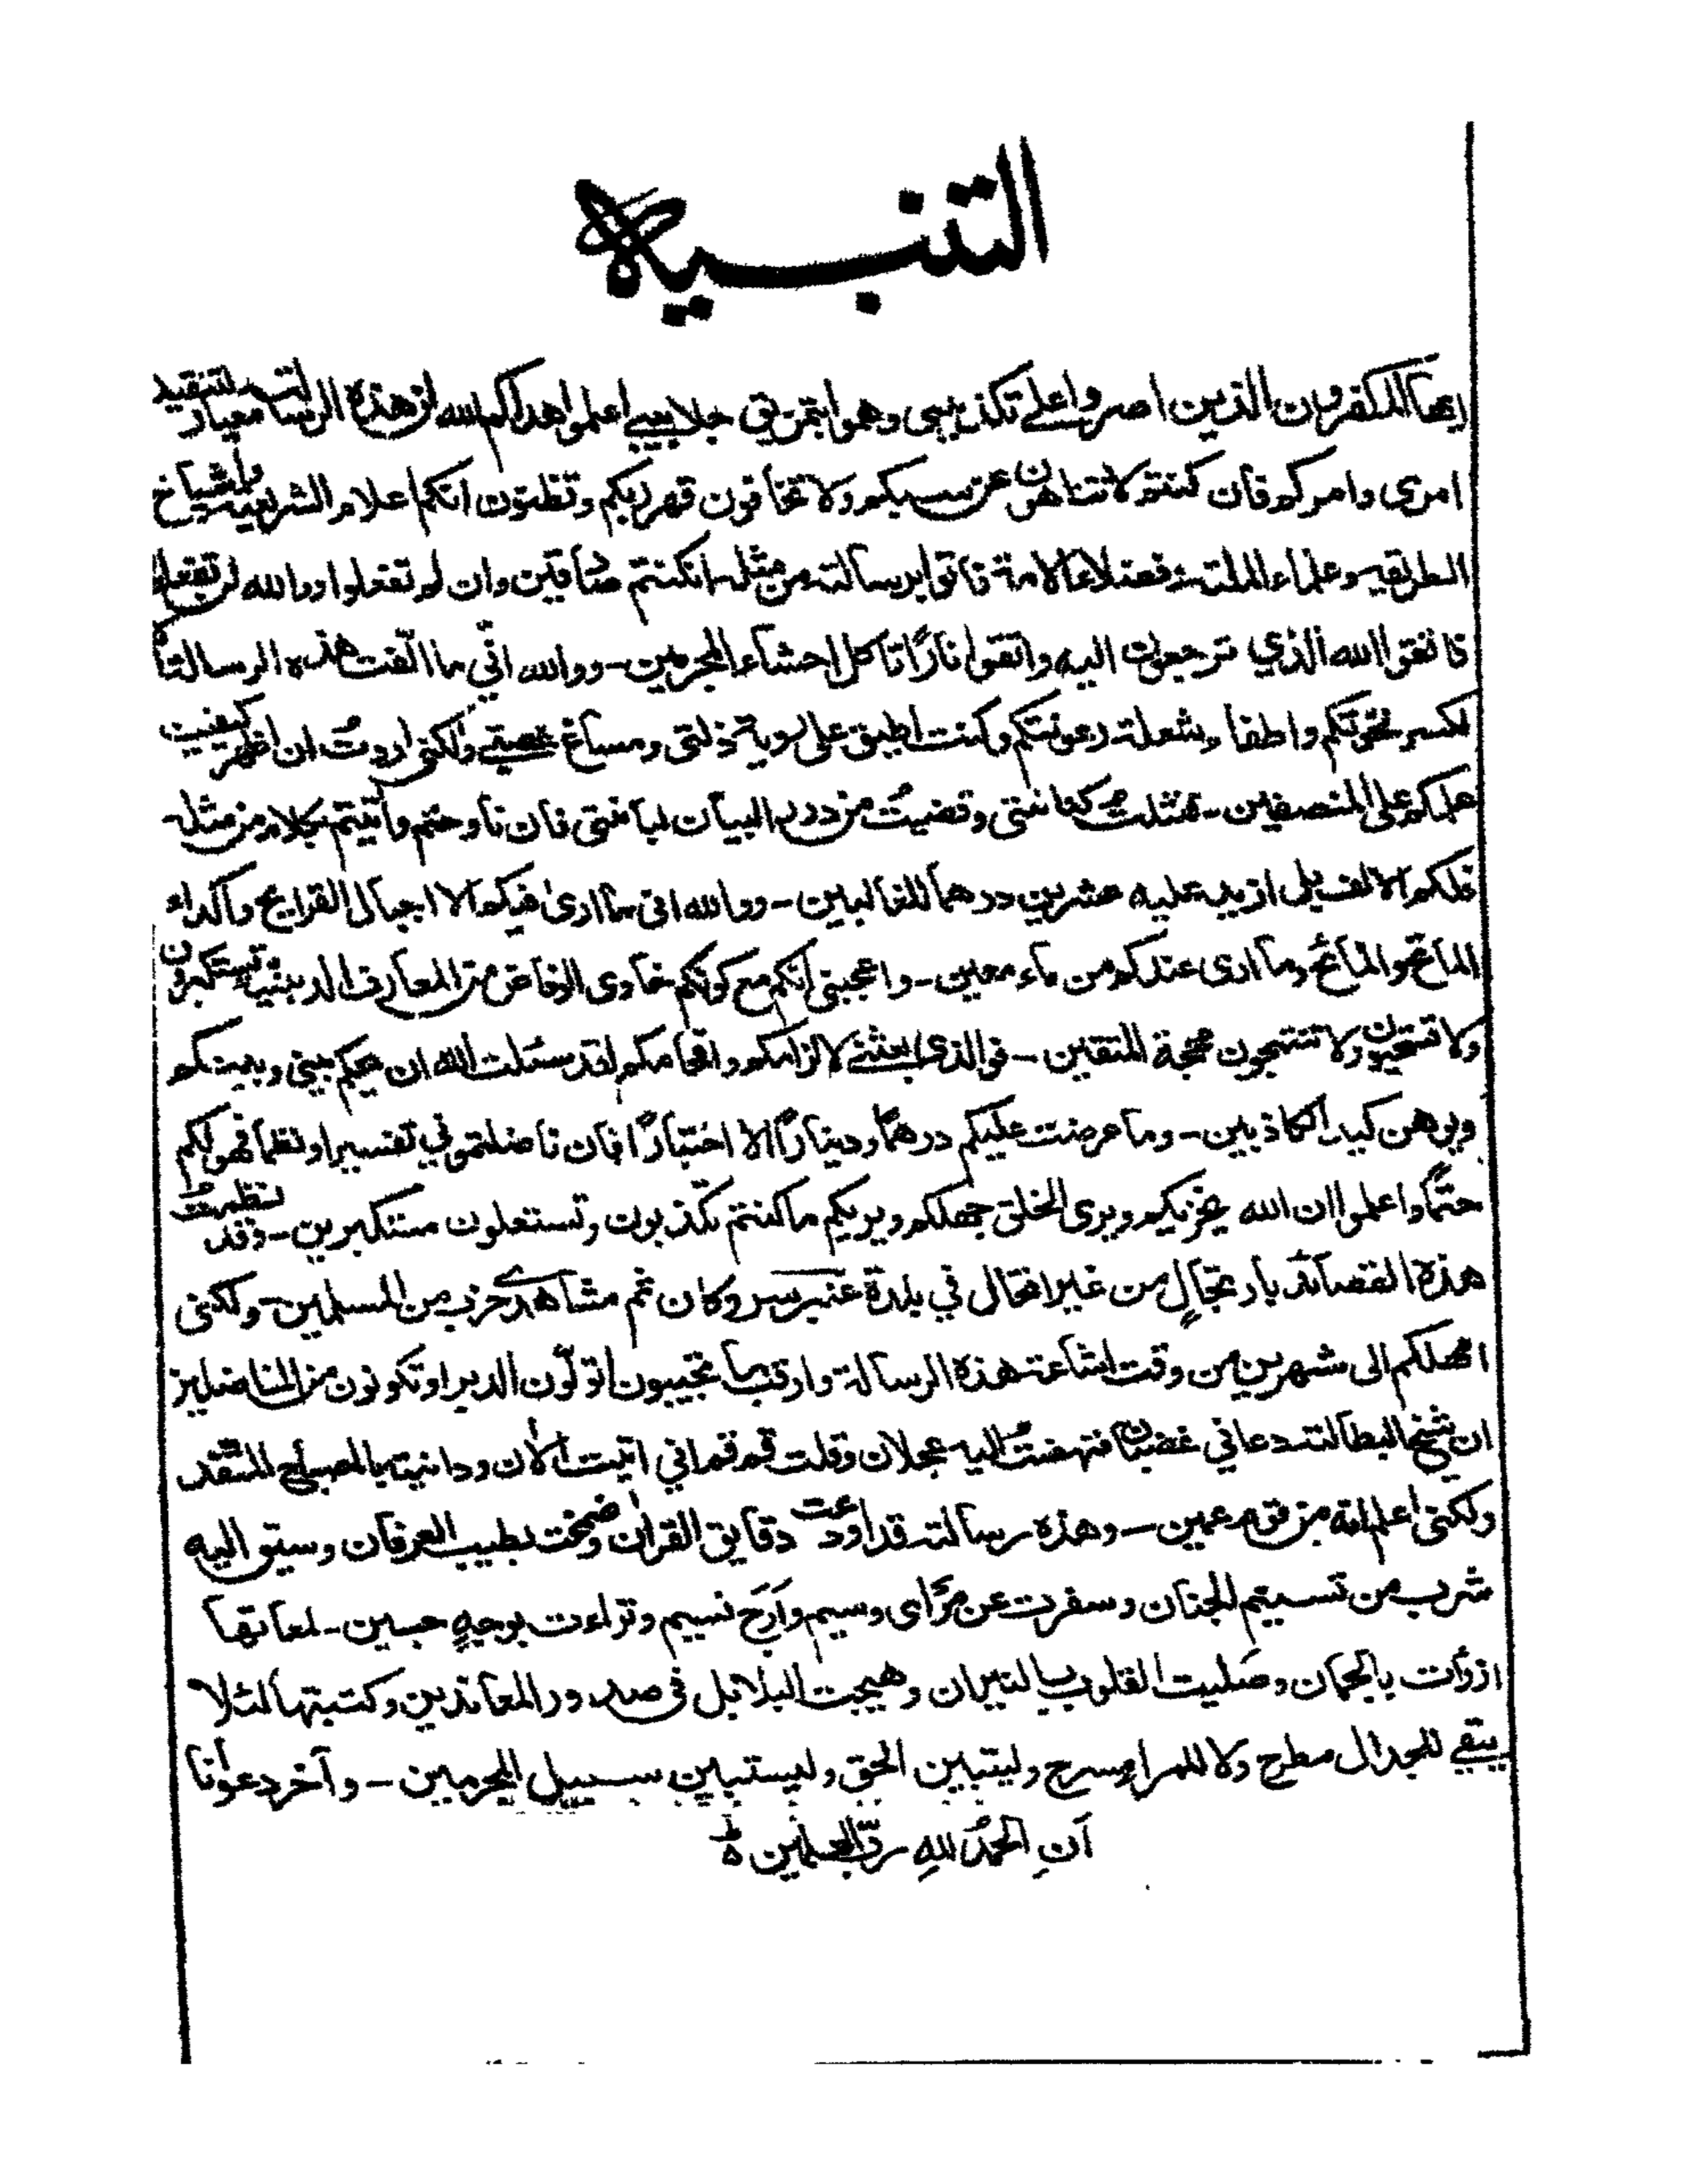 التنبيه
ايها المكفرون الذين اصروا على تكذيبي وهموا بتمزيق جلابيبي اعلموا هداكم الله ان هذه الرسالة معيار لتنقيد
امرى وامركم فان كنتم لا تتناهون عن سبكم ولا تخافون قهر ربكم وتظنون انكم اعلام الشريعة واشياخ
الطريقه وعلماء الملة وفضلاء الامة فاتوا برسالة من مثله ان كنتم صادقين وان لم تفعلوا ووالله لن تفعلوا
فاتقوا الله الذي ترجعون اليه واتقوا نارًا تاكل احشاء المجرمين - ووالله اني ما الّفت هذه الرسالة الا
لكسر نخوتكم واطفاء شعلة رعونتكم وكنت اطيق على روية ذلتي ومساغ غصتي ولكني اردتُ ان اظهر كيفيت
علمكم على المنصفين - فنثلتُ كنانتي وقضيتُ من درر البيان لبانتي فان ناوحتم واتيتم بكلام من مثله
فلكم الالف بل ازيد عليه عشرين درهما للغالبين - ووالله انى ما ارىٰ فيكم الا اجبال القرايح واكداء
الماتح والمائح وما ارى عندكم من ماء معين - واعجبني انكم مع كونكم خاوى الوفاض من المعارف الدينية تستكبرون
ولا تستحيون ولا تنتهجون محجة المتقين - فوالذى بعثني لالزامكم وافحامكم لقد سئلت الله ان يحكم بيني وبينكم
ويوهن كيد الكاذبين - وما عرضت عليكم درهمًا ودينارًا الا اختبارًا فان ناضلتموني تفسيرا ونظما فهو لكم
حتمًا واعلموا ان الله يخزيكم ويرى الخلق جهلكم ويريكم ما كنتم تكذبون وتستعلون مستكبرين - وقد نظمتُ
هذه القصائد بارتجالٍ من غير انتحال في بلدة عنبرسر وكان ثم مشاهدى حزب من المسلمين - ولكنى
امهلكم الى شهرين من وقت اشاعة هذه الرسالة وارقب ما تجيبون اتولّون الدبر او تكونون من المناضلين
ان شيخ البطالة دعاني غضبان فنهضتُ اليه عجلان وقلت قم قم اني اتيت الاٰن ودانيته بالمصباح المتقد
ولكني اعلم انه من قوم عمين - وهذه رسالة قد اودعت دقايق القراٰن وضمخت بطيب العرفان وسيق اليه
شرب من تسنيم الجنان وسفرت عن مرأى وسيم وارج نسيم وتراءت بوجهٍ حسين - لمعاتها
ازرأت بالجمان وصَليت القلوب بالنيران وهيجت البلابل فى صدور المعاندين وكتبتها لئلا
يبقي للجدال مطرح ولا للمراء مسرح وليتبين الحق وليستبين سبيل المجرمين - وآخر دعوانا
اَنِ الحمدُ للهِ ربّ العٰلمين